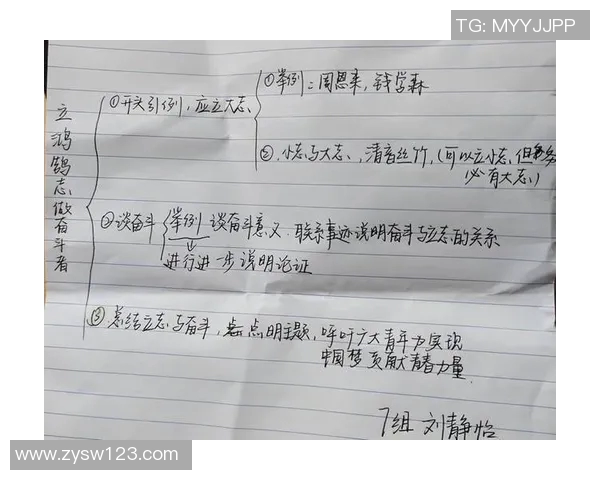 TG: MYYJJPP
立鸿鹄志,做奋斗者
①开头引例,应立大志
①举例:周恩来,钱学森
②.小志与大志,清音丝竹,(可以立小志,但
必有大志)
②谈奋斗
举例 谈奋斗意义.联系事迹说明奋斗与立志的关系
进行进一步说明论证
③总结立志与奋斗,点明主题,呼吁广大青年为实现
中国梦贡献青春力量.
7组 刘静怡
www.zysw123.com